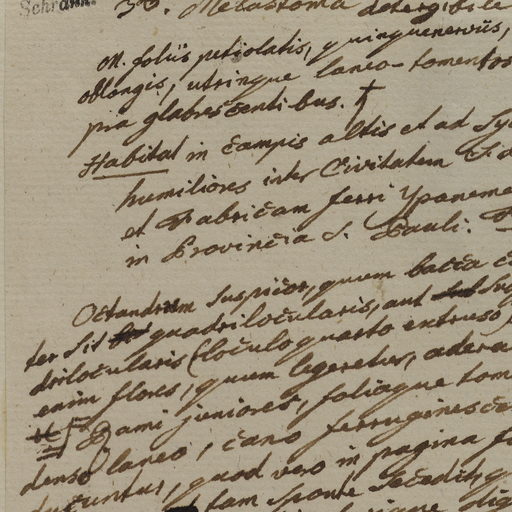 Schrank.
30. Melastoma detergibile
M. foliis petiolatis, quinquenerviis,
oblongis, utrinque laneo-tomentos
pra glabrescentibus. †
Habitat in campis altis et ad Syl
humiliores inter Civitatem
et Fabricam ferri Ypanema
in Provincia S. Pauli.
Octandram suspicor, quum bacca
ter sit quadrilocularis, aut
drilocularis (loculo quarto extruso
enim flores, quum legeretur,
Rami juniores, foliaque tom
denso laneo, cano ferruginesce
ducuntur, quod vero in pagina
tam sponte